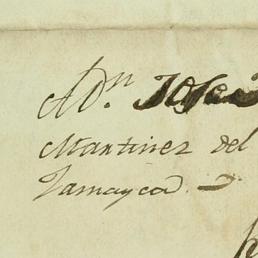 A Dn. Josef
Martinez del
Jamayca.